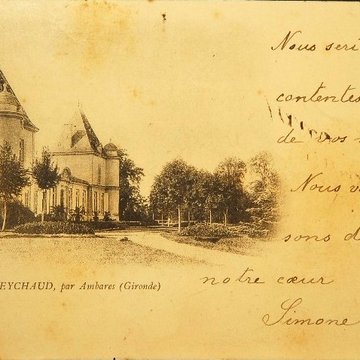 Nous seri
contentes
de vos
Nous v
sons d
notre cœur
Simone
EYCHAUD, par Ambares (Gironde)